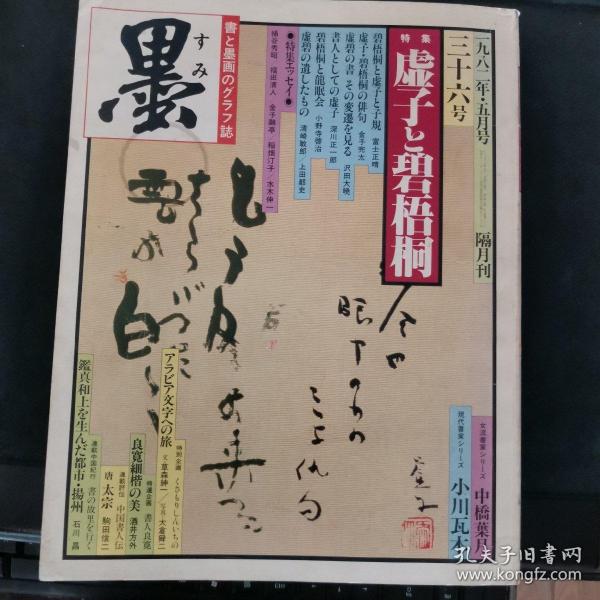 書と墨画のグラフ誌
墨
すみ
一九八二年・五月号
三十六号
隔月刊
特集
虚子と碧梧桐
碧梧桐と虚子と子規 富士正晴
虚子・碧梧桐の俳句 金子兜太
虚碧の書 その変遷を見る 沢田大暁
書人としての虚子 深川正一郎
碧梧桐と龍眠会 小野寺啓治
虚碧の遺したもの 清崎敏郎/上田都史
●特集エッセイ●
桶谷秀昭/福田清人/金子鷗亭/稲畑汀子/水木伸一
女流書家シリーズ
中橋葉月
現代書家シリーズ
小川瓦木
特別企画 くさもりしんいちの
アラビア文字への旅
文 草森紳一/写真・大倉舜二
特選企画 書人良寛
良寛細楷の美 酒井方外
連載評伝 中国書人伝
唐 太宗 駒田信二
連載中国紀行 書の故里を行く
鑑真和上を生んだ都市・揚州 石川昌
孔夫子旧书网
www.kongfz.com